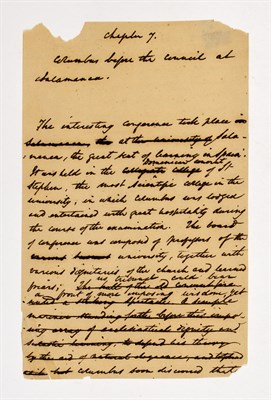 Chapter 7.
Columbus before the council at
Salamanca.
The interesting conference took place in
Salamanca, the at the university of Sala-
manca, the great seat of learning in Spain.
It was held in the Dominican convent
collegiate college of St
Stephen, the most scientific college in the
university, in which Columbus was lodged
and entertained with great hospitality during
the course of the examination. The board
of conference was composed of professors of the
university, together with
various dignitaries of the church and learned
friars; No tribunal could bear
a front of more imposing wisdom, yet
this impo-
sing array of ecclesiastical dignity and
learning, to defend his theory
by the aid of natural eloquence,
but Columbus soon discovered that